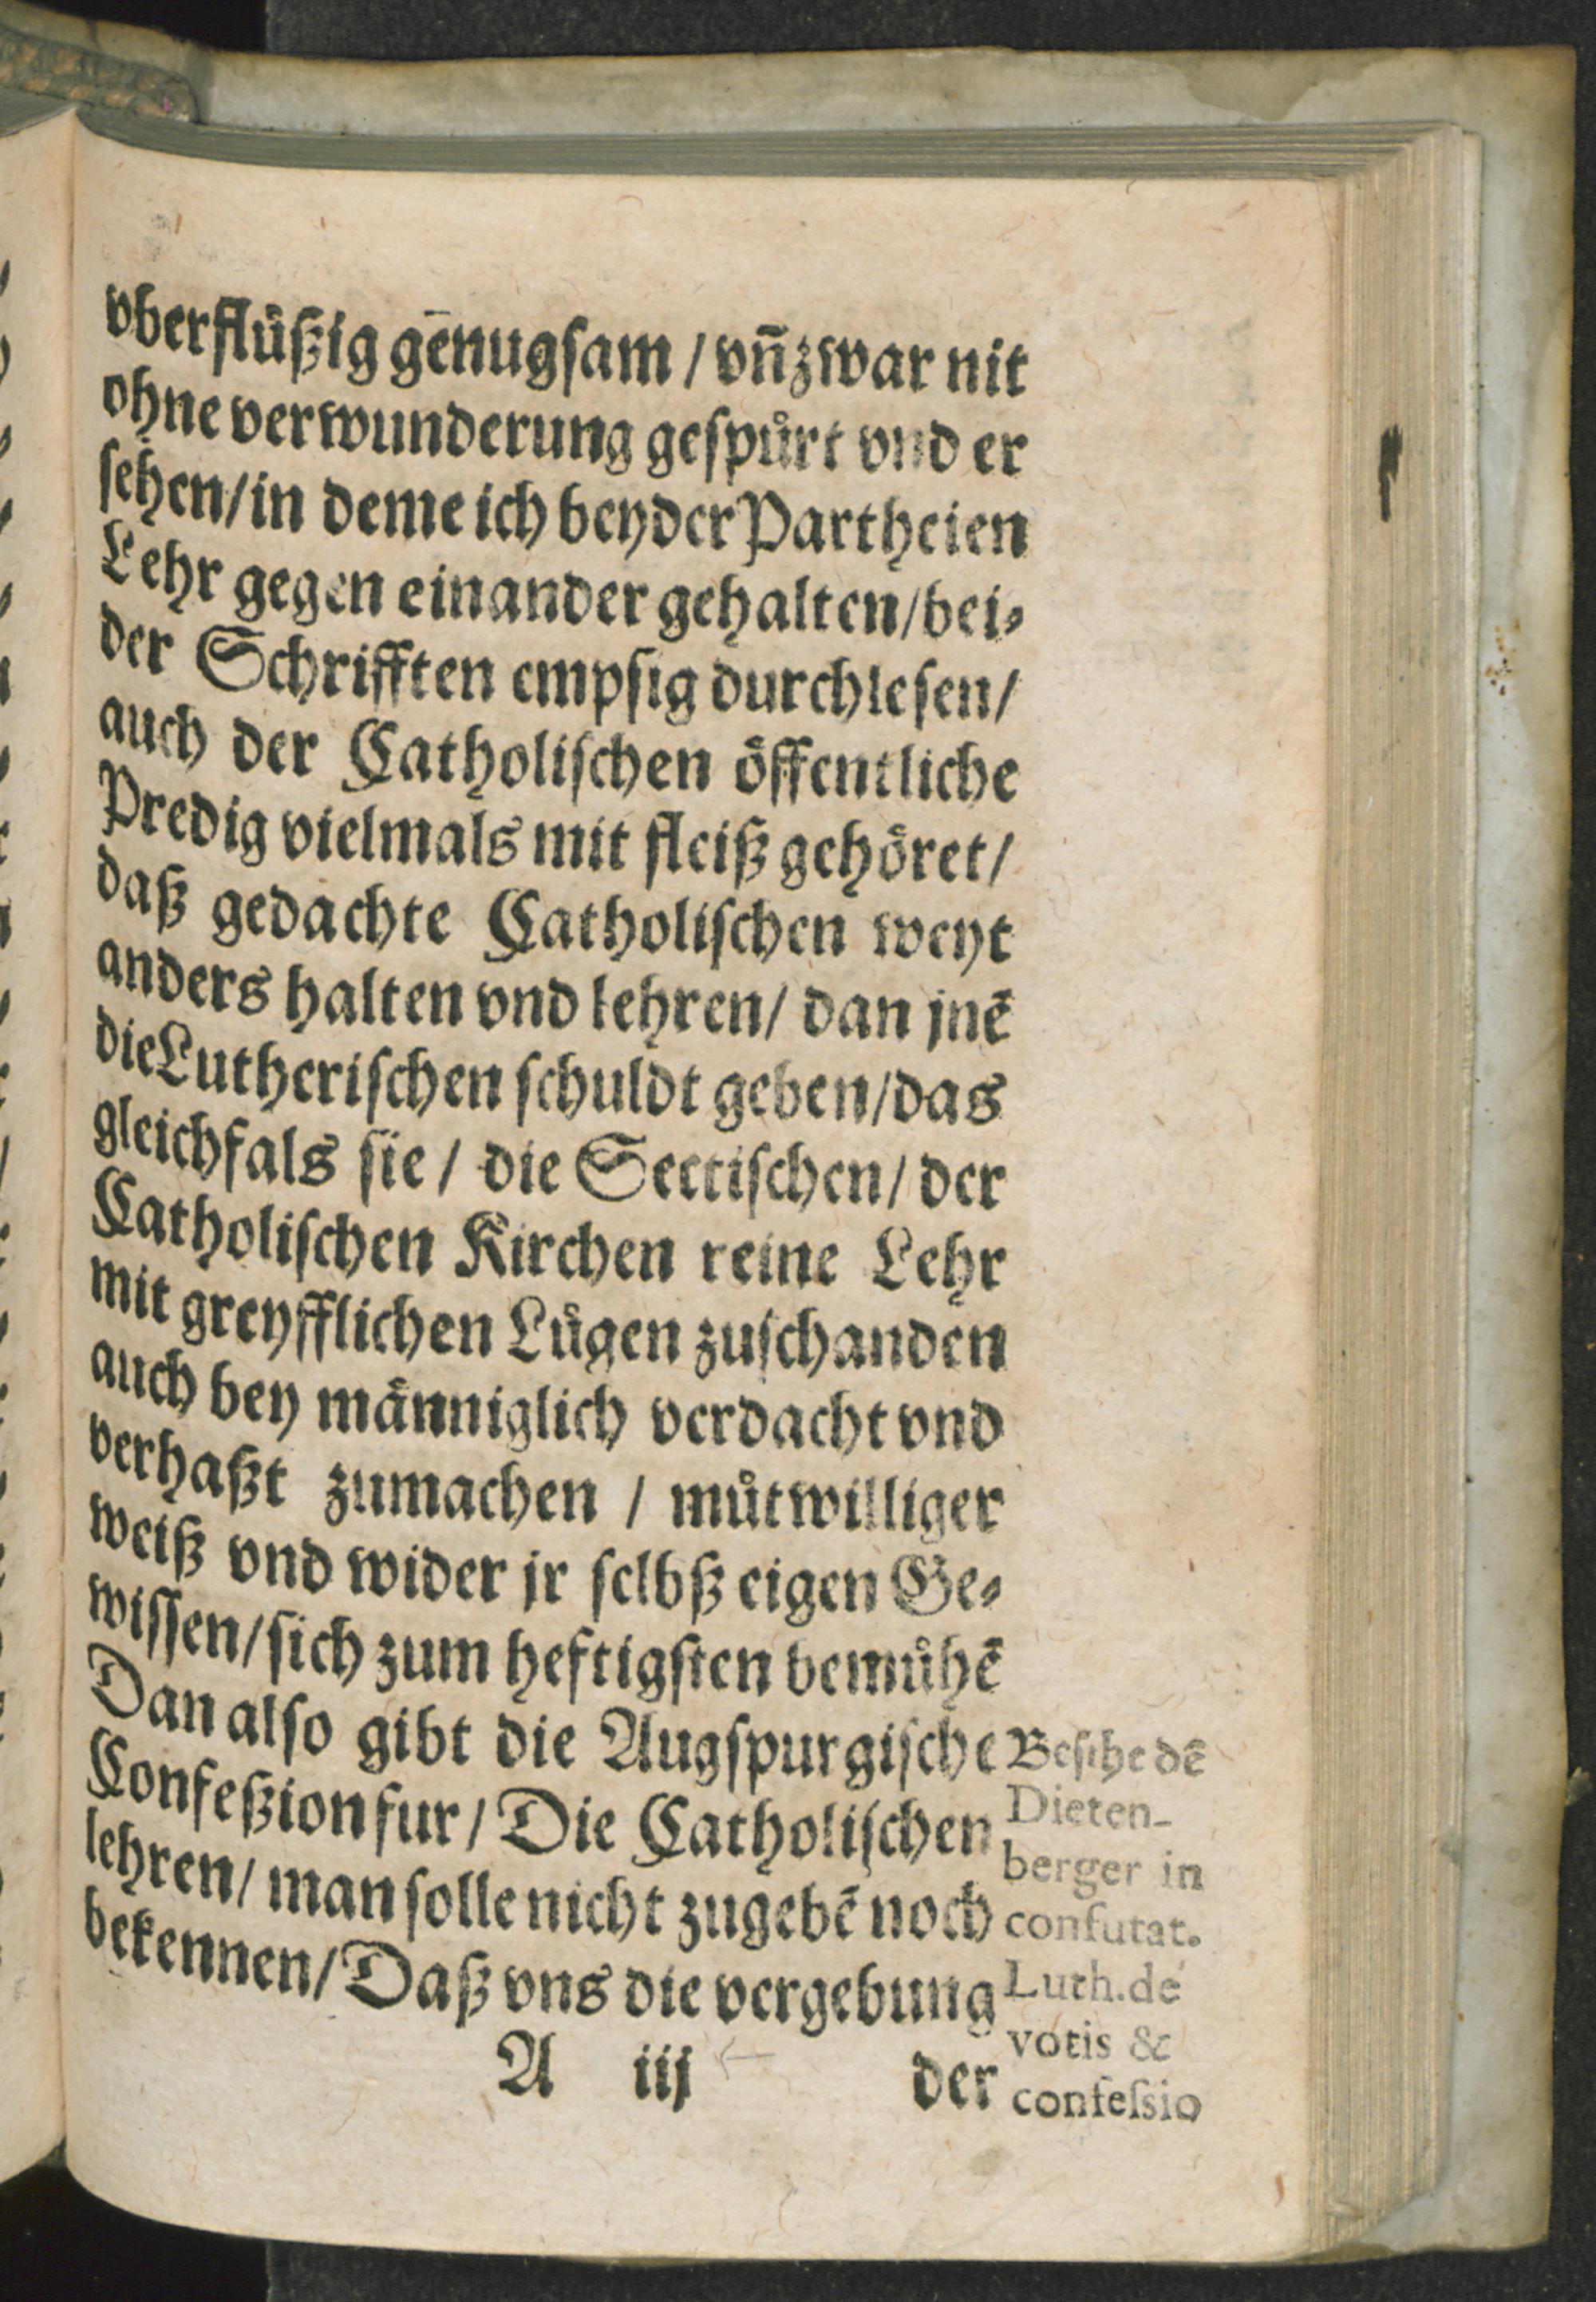 vberflüßig gēnugsam / vn̄ zwar nit
ohne verwunderung gespůrt vnd er
sehen/in deme ich beyder Partheien
Lehr gegen einander gehalten/bei-
der Schrifften empsig durchlesen/
auch der Catholischen öffentliche
Predig vielmals mit fleiß gehöret/
daß gedachte Catholischen weyt
anders halten vnd lehren/ dan jnē
die Lutherischen schuldt geben/das
gleichfals sie / die Sectischen/ der
Catholischen Kirchen reine Lehr
mit greyfflichen Lügen zuschanden
auch bey männiglich verdacht vnd
verhaßt zumachen / můtwilliger
weiß vnd wider jr selbß eigen Ge-
wissen/sich zum heftigsten bemůhē
Dan also gibt die Augspurgische
Confeßion fur/ Die Catholischen
lehren/ man solle nicht zugebē noch
bekennen/ Daß vns die vergebung
A iij der
Besihe dē
Dieten-
berger in
confutat.
Luth. de
votis &
confeſsio